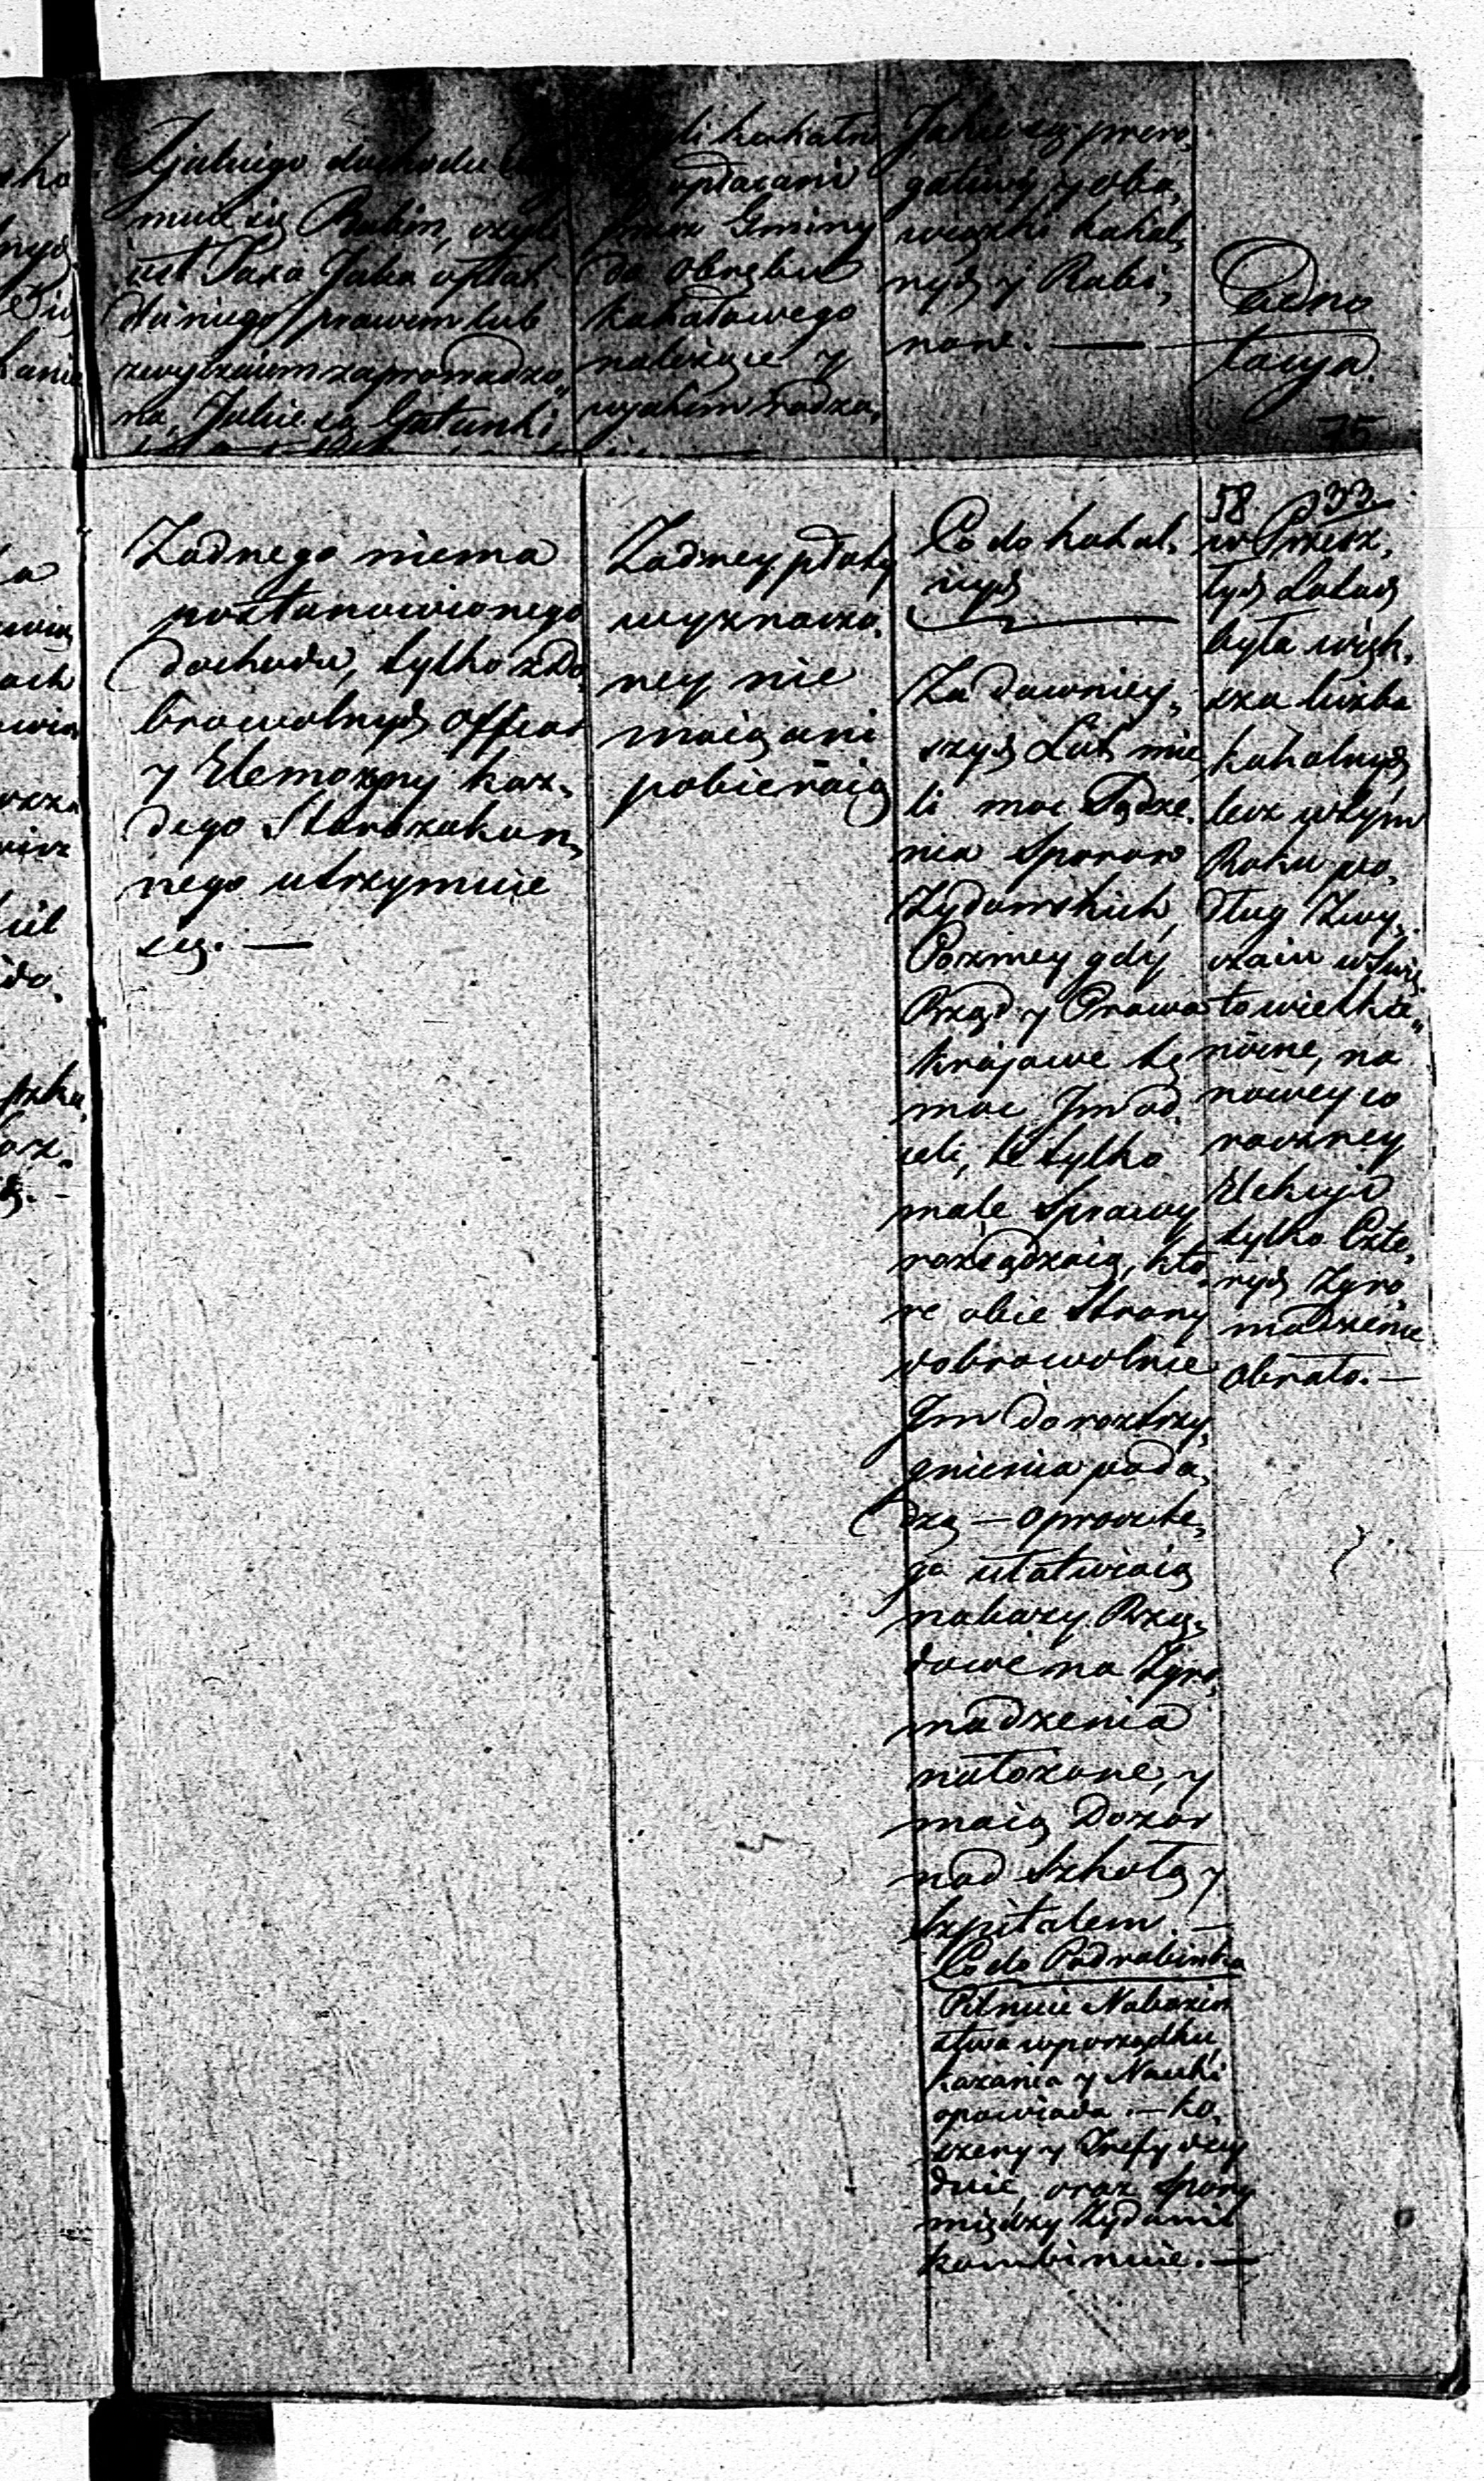 Z jakiego dochodu
muie się Rabin, czyli
iest Taxa Jaka opłat
dla niego prawem lub
zwyczaiem zaprowadzo„
na, Jakie są Gatunki
kahaln
opłacani
przez Gminy
do obrębu
kahałowego
należące y
w jakim rodza„
Jakie są prero„
gatiwy y obo„
wiązki kahal„
nych y Rabi„
nów. —
Adno
tacya.
75
Żadnego niema
postanowionego
dochodu, tylko z do„
browolnych offiar
y Elemozyny każ„
dego Starozakon„
nego utrzymuie
się. —
Żadney płacy
wyznaczo„
ney nie
maią ani
pobieraią
Co do kahal„
nych
Za dawniey„
szych Lat mie„
li moc Sądze„
nia Sporów
Żydowskich,
Poźniey gdy
Rząd y Prawa
krajowe tę
moc Jm od„
ieli, to tylko
małe Sprawy
rozsądzaią, któ„
re obie Strony
dobrowolnie
Jm do roztrzy„
gnienia poda„
dzą — oprocz te„
go ułatwiaią
nakazy Rzą„
dowe na Zgro„
madzenia
nałożone, y
maią Dozor
nad Szkołą y
Szpitalem. —
Co do Podrabinka
Pilnuie Nabożeń
stwa w porządku,
kazania y Nauki
opowiada. — Ko„
szery y Trefy
duie, oraz Spory
między Żydami
kombinuie. —
58. 33
w Przesz„
łych Latach
była więk„
sza liczba
kahalnych
lecz w tym
Roku po„
dług Zwy„
czaiu w Świę„
to wielka„
nócne, na
nowey co
roczney
Elekcyi
tylko Czte„
rych Zgro„
madzenie
obrało. —